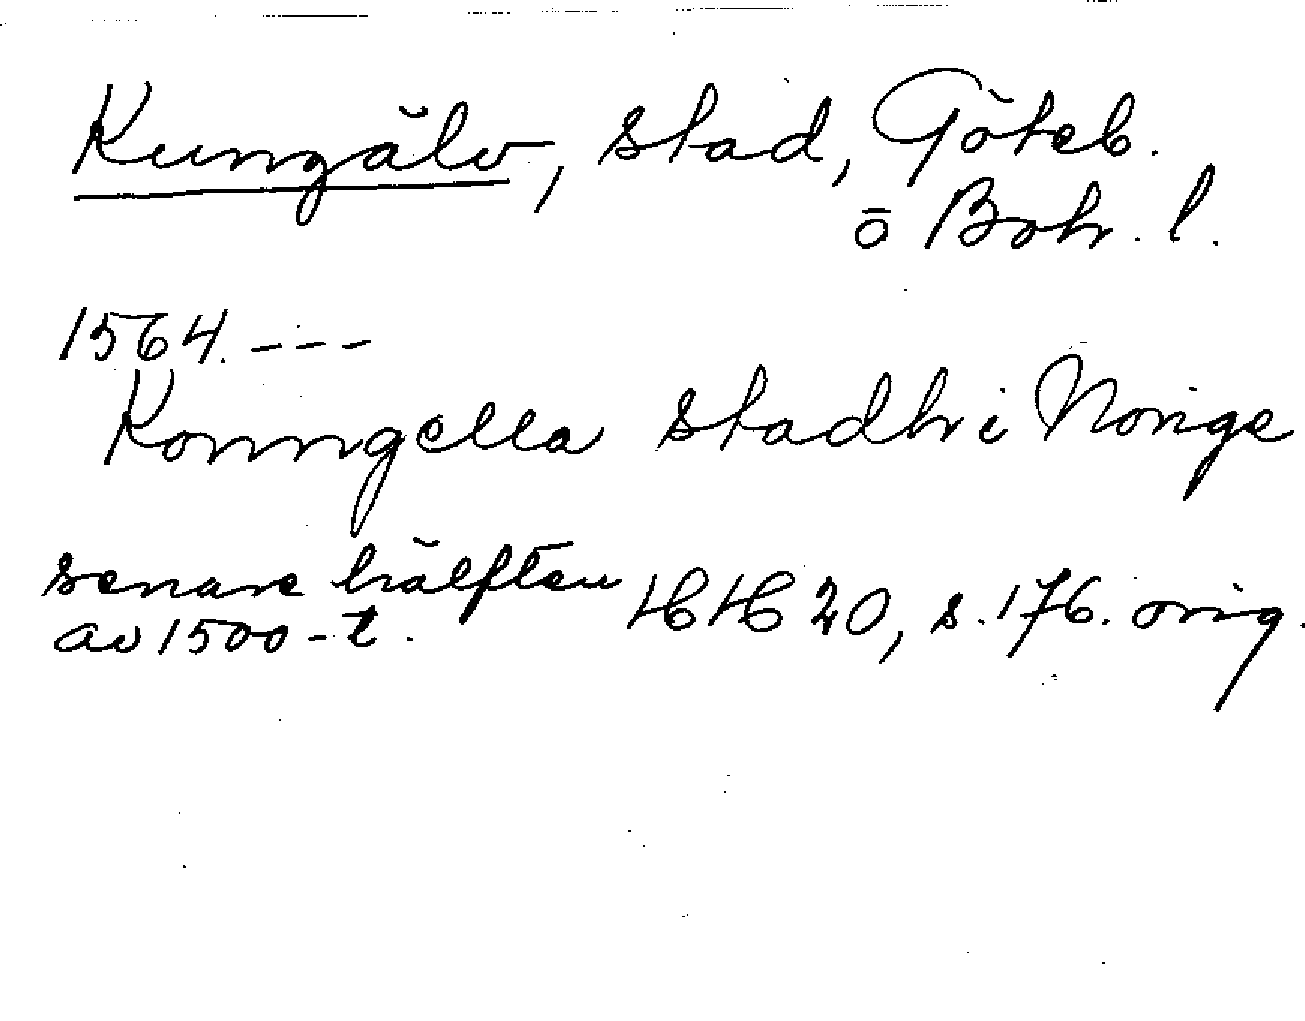 Kungälv, stad, Göteb.
o Boh. l.
1564. ---
Konngella stadh i Norige
senare hälften
av 1500-t.
HH 20, s. 176. orig.